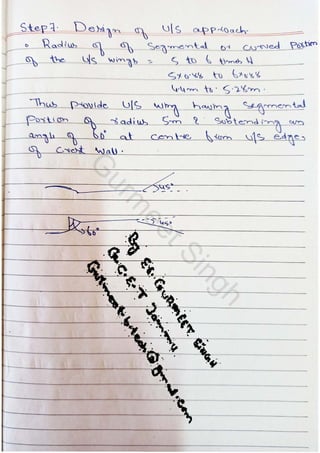 Step7. Design of U/S approach
o Radius of of Segmental or curved Portion
of the U/S wings = 5 to 6 times H
5x0.88 to 6x0.88
4.4m to 5.28m.
Thus provide U/S wing having Segmental
portion of radius 5m & Subtending an
angle of 60° at centre from U/S edges
of Crest wall.
45°
60°
45°
Gurmeet Singh
By ER. GURMEET SINGH
G.C.E.T Jammu